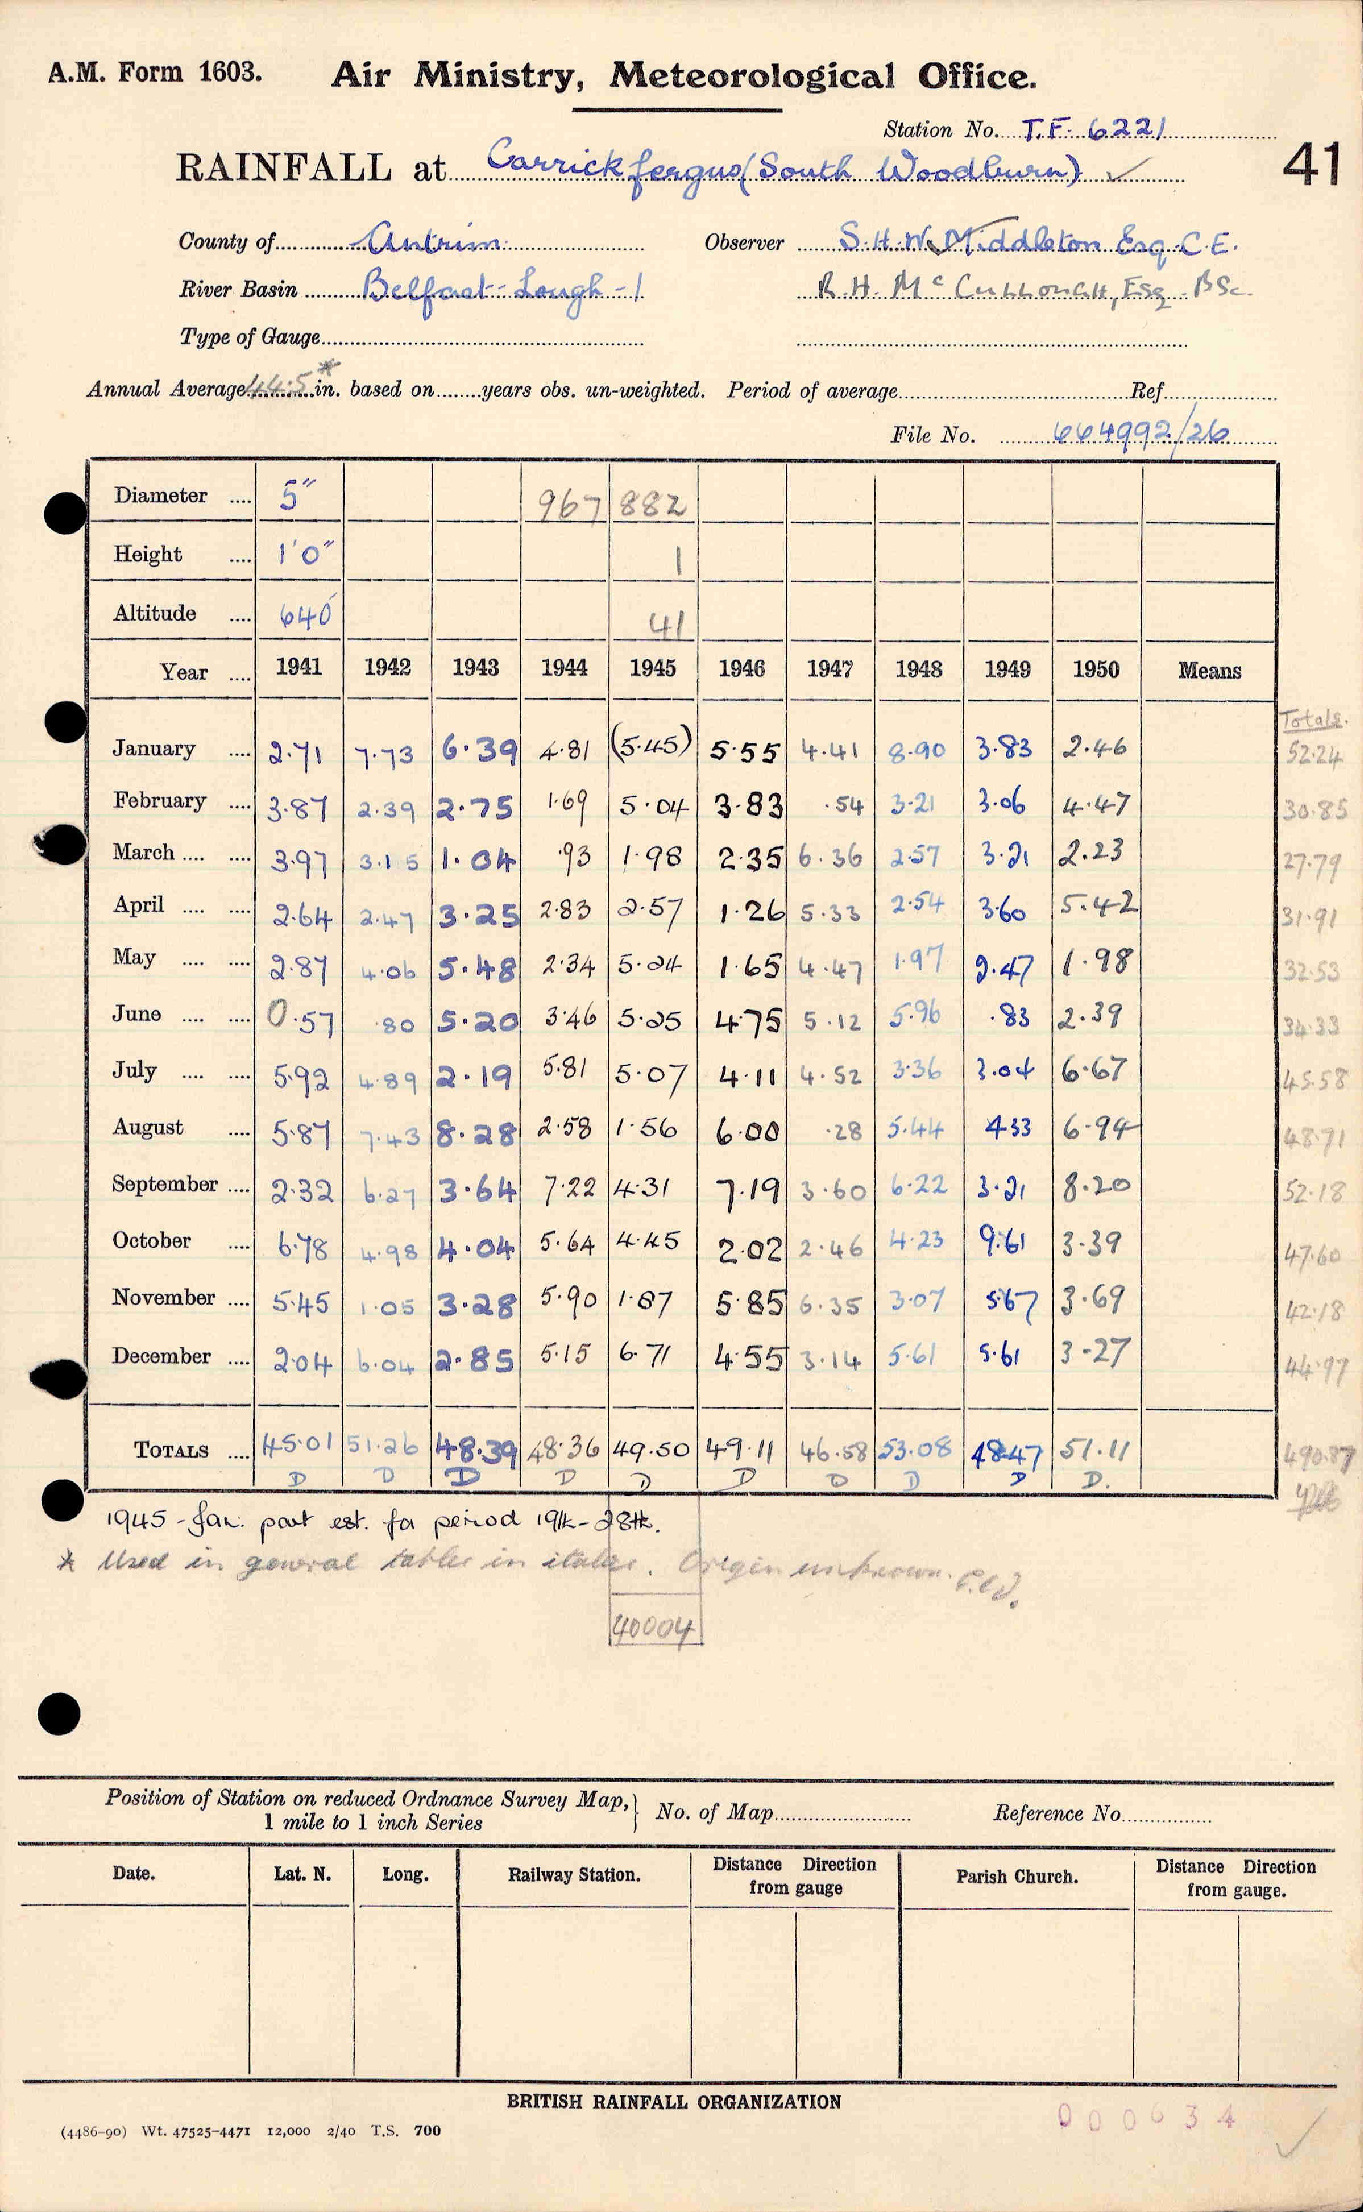 A.M. Form 1603. Air Ministry, Meteorological Office.
Station No. T.F. 6221
RAINFALL at Carrickfergus (South Woodburn) ✓
41
County of Antrim Observer S.H.W. Middleton Esq. C.E.
River Basin Belfast Lough - 1 R H. McCULLOUGH, Esq. BSc
Type of Gauge
Annual Average 44.5* in. based on years obs. un-weighted. Period of average Ref
File No. 664992/26
Diameter 5" 967 882
Height 1'0" 1
Altitude 640' 41
Year 1941 1942 1943 1944 1945 1946 1947 1948 1949 1950 Means
Totals.
January 2.71 7.73 6.39 4.81 (5.45) 5.55 4.41 8.90 3.83 2.46 52.24
February 3.87 2.39 2.75 1.69 5.04 3.83 .54 3.21 3.06 4.47 30.85
March 3.97 3.15 1.04 .93 1.98 2.35 6.36 2.57 3.21 2.23 27.79
April 2.64 2.47 3.25 2.83 2.57 1.26 5.33 2.54 3.60 5.42 31.91
May 2.87 4.06 5.48 2.34 5.24 1.65 4.47 1.97 2.47 1.98 32.53
June 0.57 .80 5.20 3.46 5.25 4.75 5.12 5.96 .83 2.39 34.33
July 5.92 4.89 2.19 5.81 5.07 4.11 4.52 3.36 3.04 6.67 45.58
August 5.87 7.43 8.28 2.58 1.56 6.00 .28 5.44 4.33 6.94 48.71
September 2.32 6.27 3.64 7.22 4.31 7.19 3.60 6.22 3.21 8.20 52.18
October 6.78 4.98 4.04 5.64 4.45 2.02 2.46 4.23 9.61 3.39 47.60
November 5.45 1.05 3.28 5.90 1.87 5.85 6.35 3.07 5.67 3.69 42.18
December 2.04 6.04 2.85 5.15 6.71 4.55 3.14 5.61 5.61 3.27 44.97
TOTALS 45.01 51.26 48.39 48.36 49.50 49.11 46.58 53.08 48.47 51.11 490.87
D D D D D D D D D D.
1945 - Jan. part est. for period 19th - 28th.
* Used in general tables in italics. Origin unknown.
40004
Position of Station on reduced Ordnance Survey Map,
1 mile to 1 inch Series
No. of Map Reference No.
Date. Lat. N. Long. Railway Station. Distance Direction from gauge Parish Church. Distance Direction from gauge.
BRITISH RAINFALL ORGANIZATION
(4486-90) Wt. 47525-4471 12,000 2/40 T.S. 700
000634